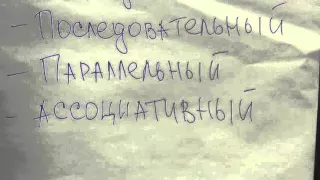 - Последовательный
- Параллельный
- Ассоциативный